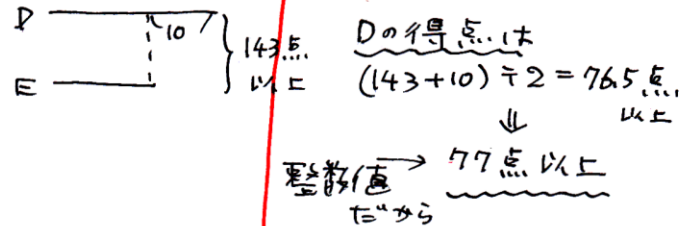 D
10
E
143点
以上
Dの得点は
(143+10)÷2=76.5点
以上
⇓
整数値 → 77点以上
だから